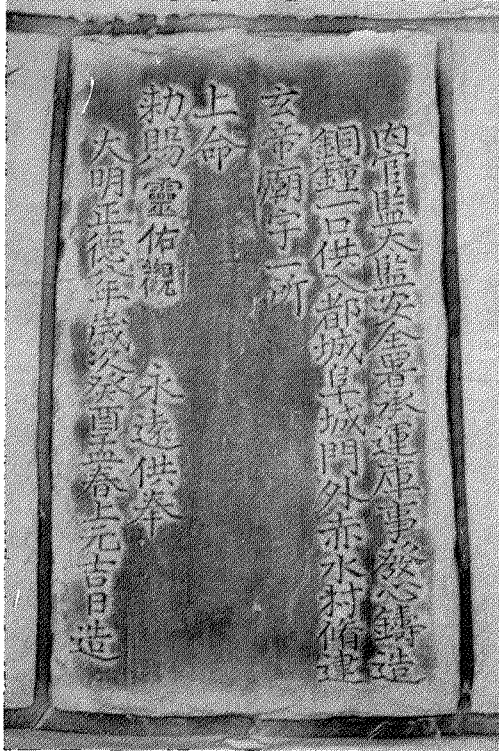 内官監太監安全署承運庫事發心鑄造
銅鐘一口供入都城阜城門外赤水村脩建
玄帝廟宇一所
上命
勅賜靈佑觀 永遠供奉
大明正德八年歲次癸酉孟春上元吉日造